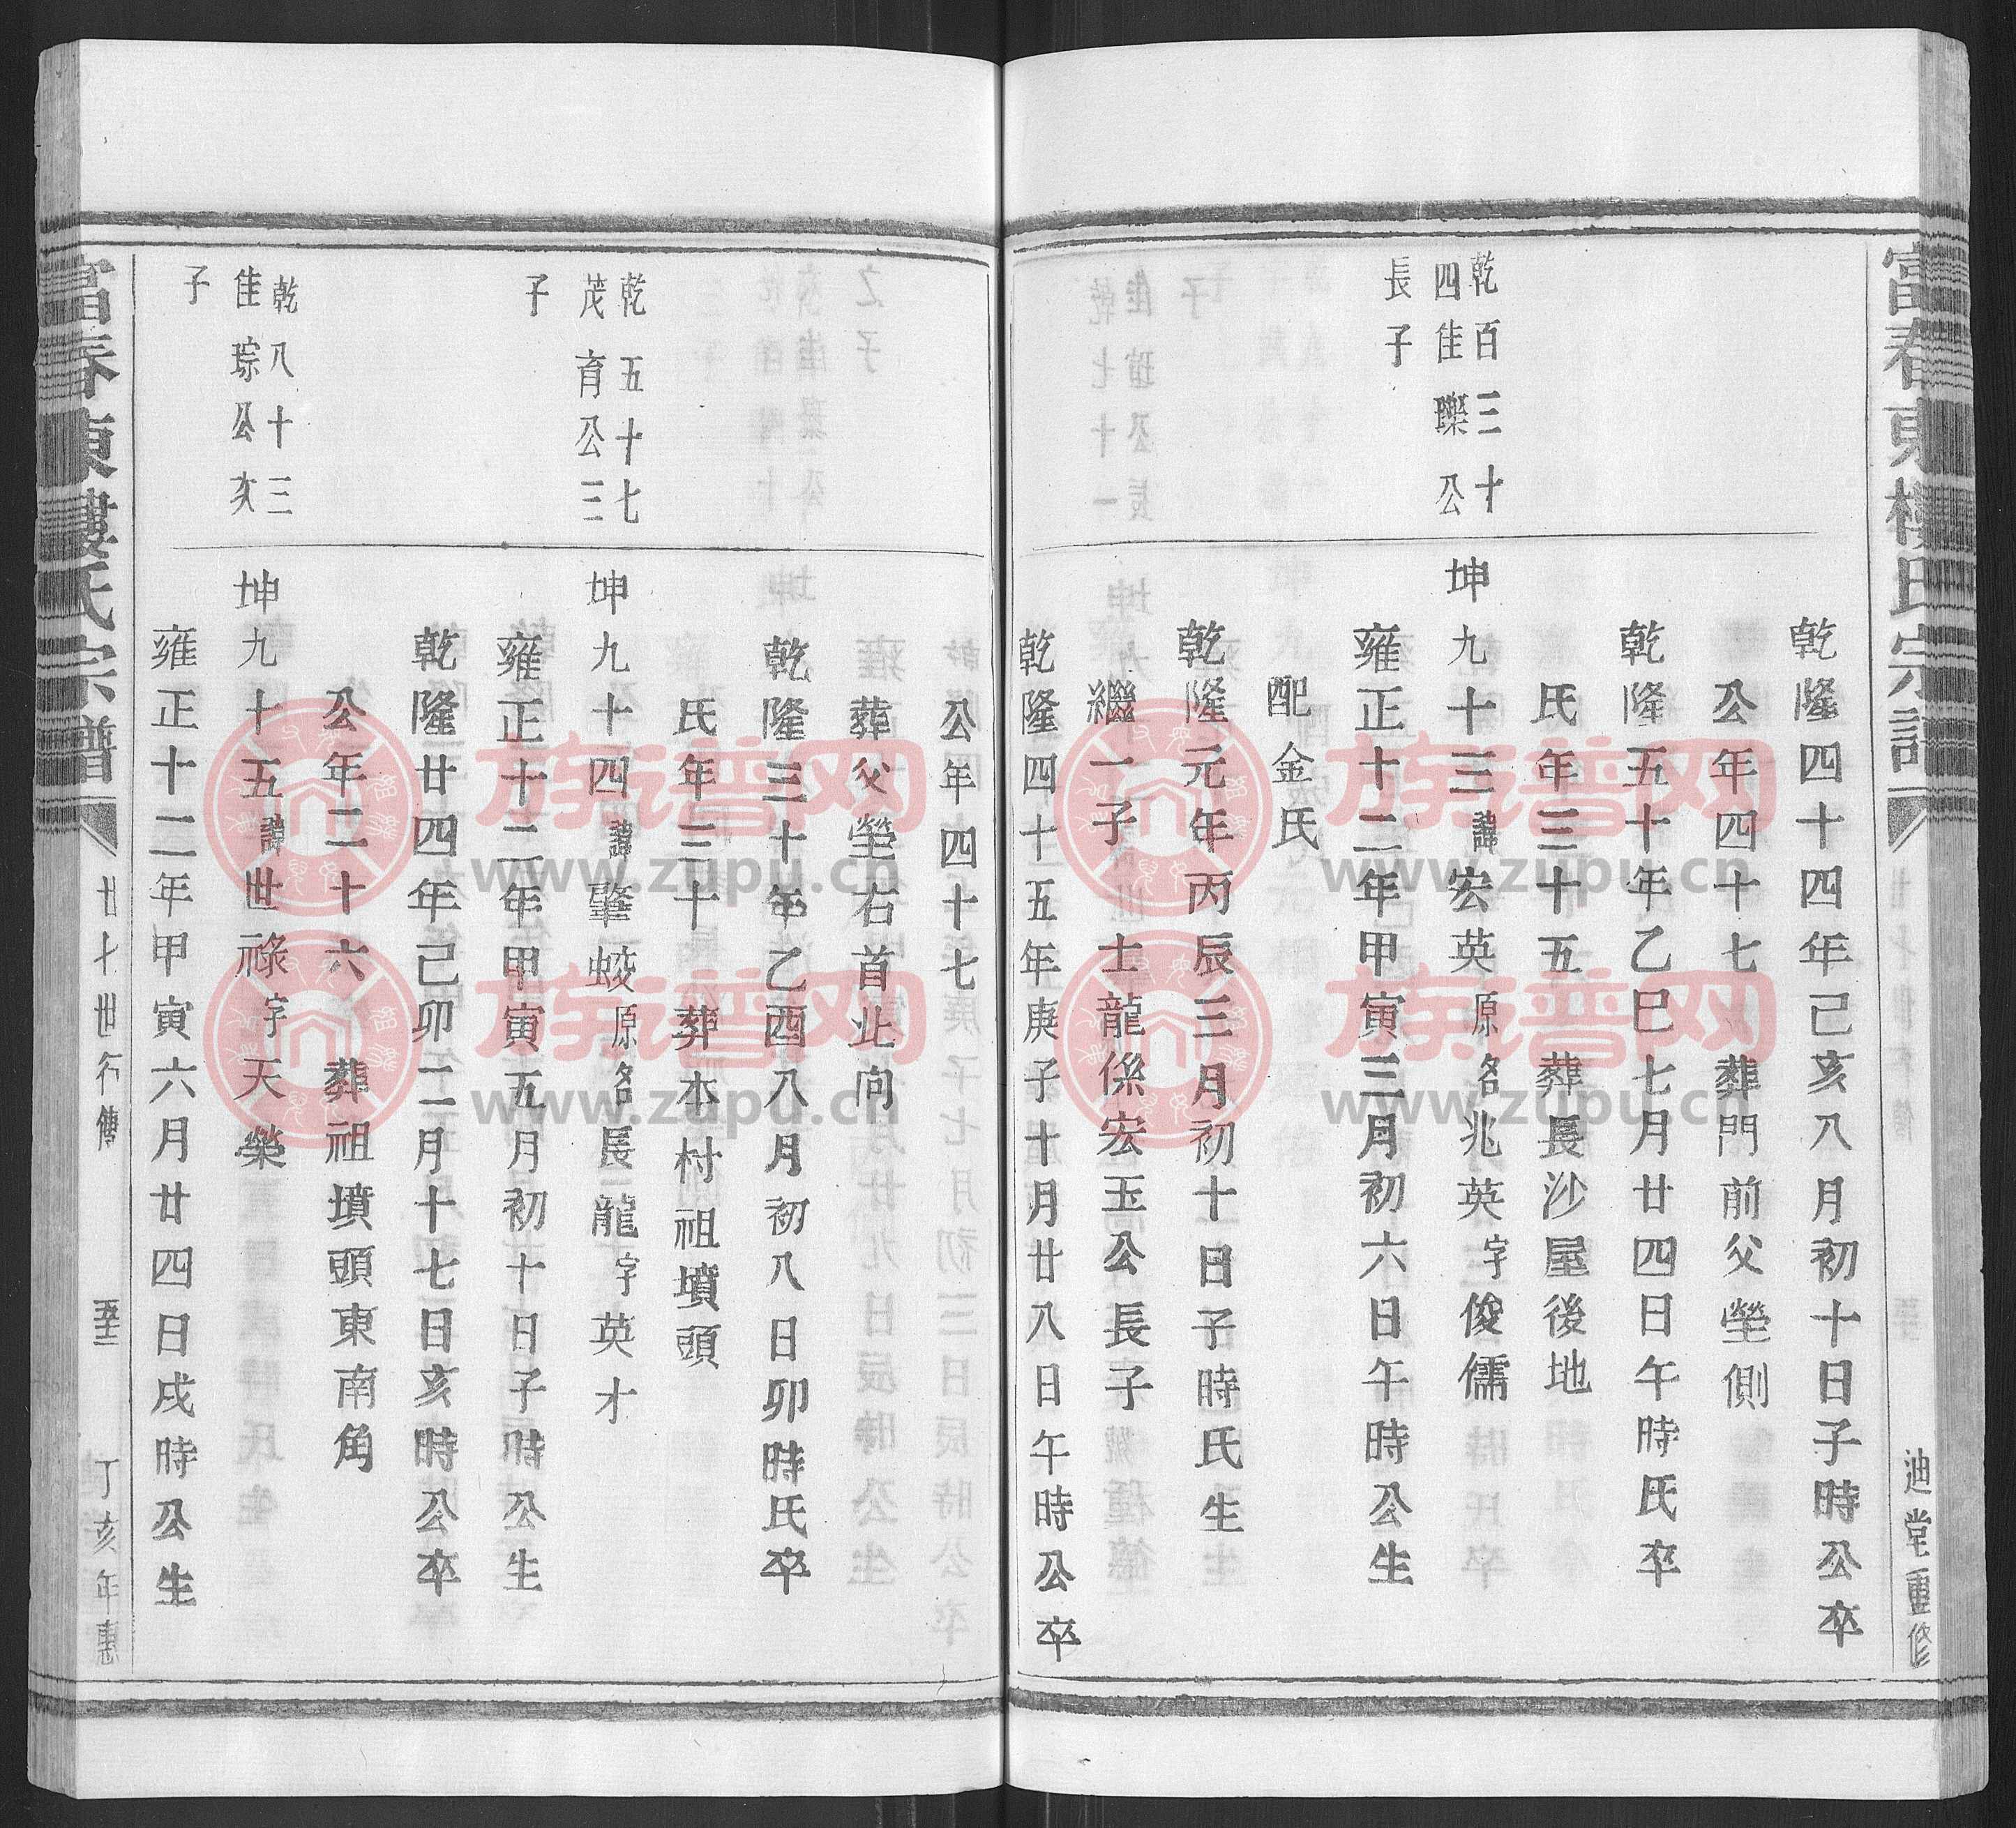 富春東樓氏宗譜
迪堂重修
乾隆四十四年己亥八月初十日子時公卒
公年四十七 葬門前父塋側
乾隆五十年乙巳七月廿四日午時氏卒
氏年三十五 葬長沙屋後地
乾百三十
四佳躒公
長子
坤九十三諱宏英原名兆英字俊儒
雍正十二年甲寅三月初六日午時公生
配金氏
乾隆元年丙辰三月初十日子時氏生
繼一子士龍係宏玉公長子
乾隆四十五年庚子十月廿八日午時公卒
公年四十七
葬父塋右首北向
乾隆三十年乙酉八月初八日卯時氏卒
氏年三十 葬本村祖墳頭
乾五十七
茂育公三
子
坤九十四諱肇蛟原名長龍字英才
雍正十二年甲寅五月初十日子時公生
乾隆廿四年己卯二月十七日亥時公卒
公年二十六 葬祖墳頭東南角
乾八十三
佳琮公次
子
坤九十五諱世祿字天榮
雍正十二年甲寅六月廿四日戌時公生
富春東樓氏宗譜
廿七世行傳
丁亥年惠
族譜网
www.zupu.cn
族譜网
www.zupu.cn
族譜网
www.zupu.cn
族譜网
www.zupu.cn